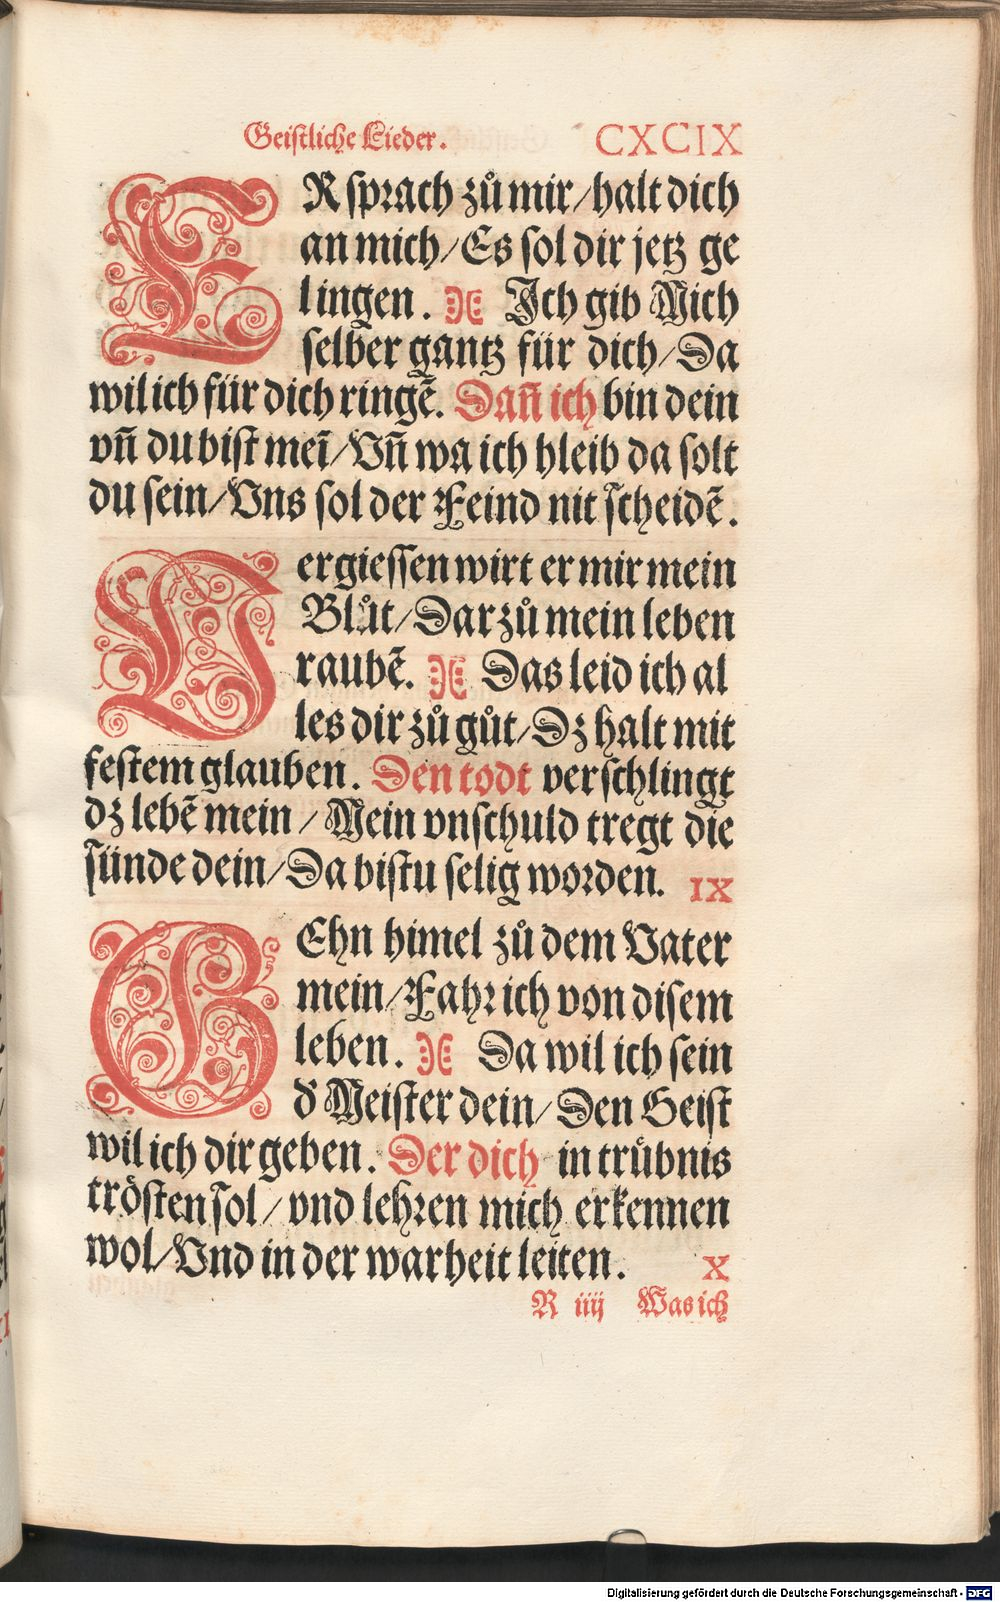 Geistliche Lieder. CXCIX
ER sprach zů mir/halt dich
an mich/Es sol dir jetz ge
lingen. Ich gib Mich
selber gantz für dich/Da
wil ich für dich ringẽ. Dañ ich bin dein
vñ du bist meĩ/Vñ wa ich bleib da solt
du sein/Vns sol der Feind nit scheidẽ.
Vergiessen wirt er mir mein
Blůt/Darzů mein leben
raubẽ. Das leid ich al
les dir zů gůt/Dz halt mit
festem glauben. Den todt verschlingt
dz lebẽ mein/Mein vnschuld tregt die
sünde dein/Da bistu selig worden. IX
GEhn himel zů dem Vater
mein/Fahr ich von disem
leben. Da wil ich sein
d' Meister dein/Den Geist
wil ich dir geben. Der dich in trůbnis
trösten sol/vnd lehren mich erkennen
wol/Vnd in der warheit leiten. X
R iiij Was ich
Digitalisierung gefördert durch die Deutsche Forschungsgemeinschaft - DFG